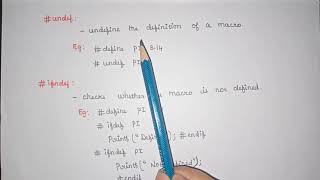 # undef:
- undefine the definition of a macro.
Eg: # define PI 3.14
# undef PI
# ifndef:
- checks whether macro is not defined.
Eg: # define PI
# ifdef PI
Printf("Defi"); # endif
# ifndef PI
Printf("No ined");
# endif